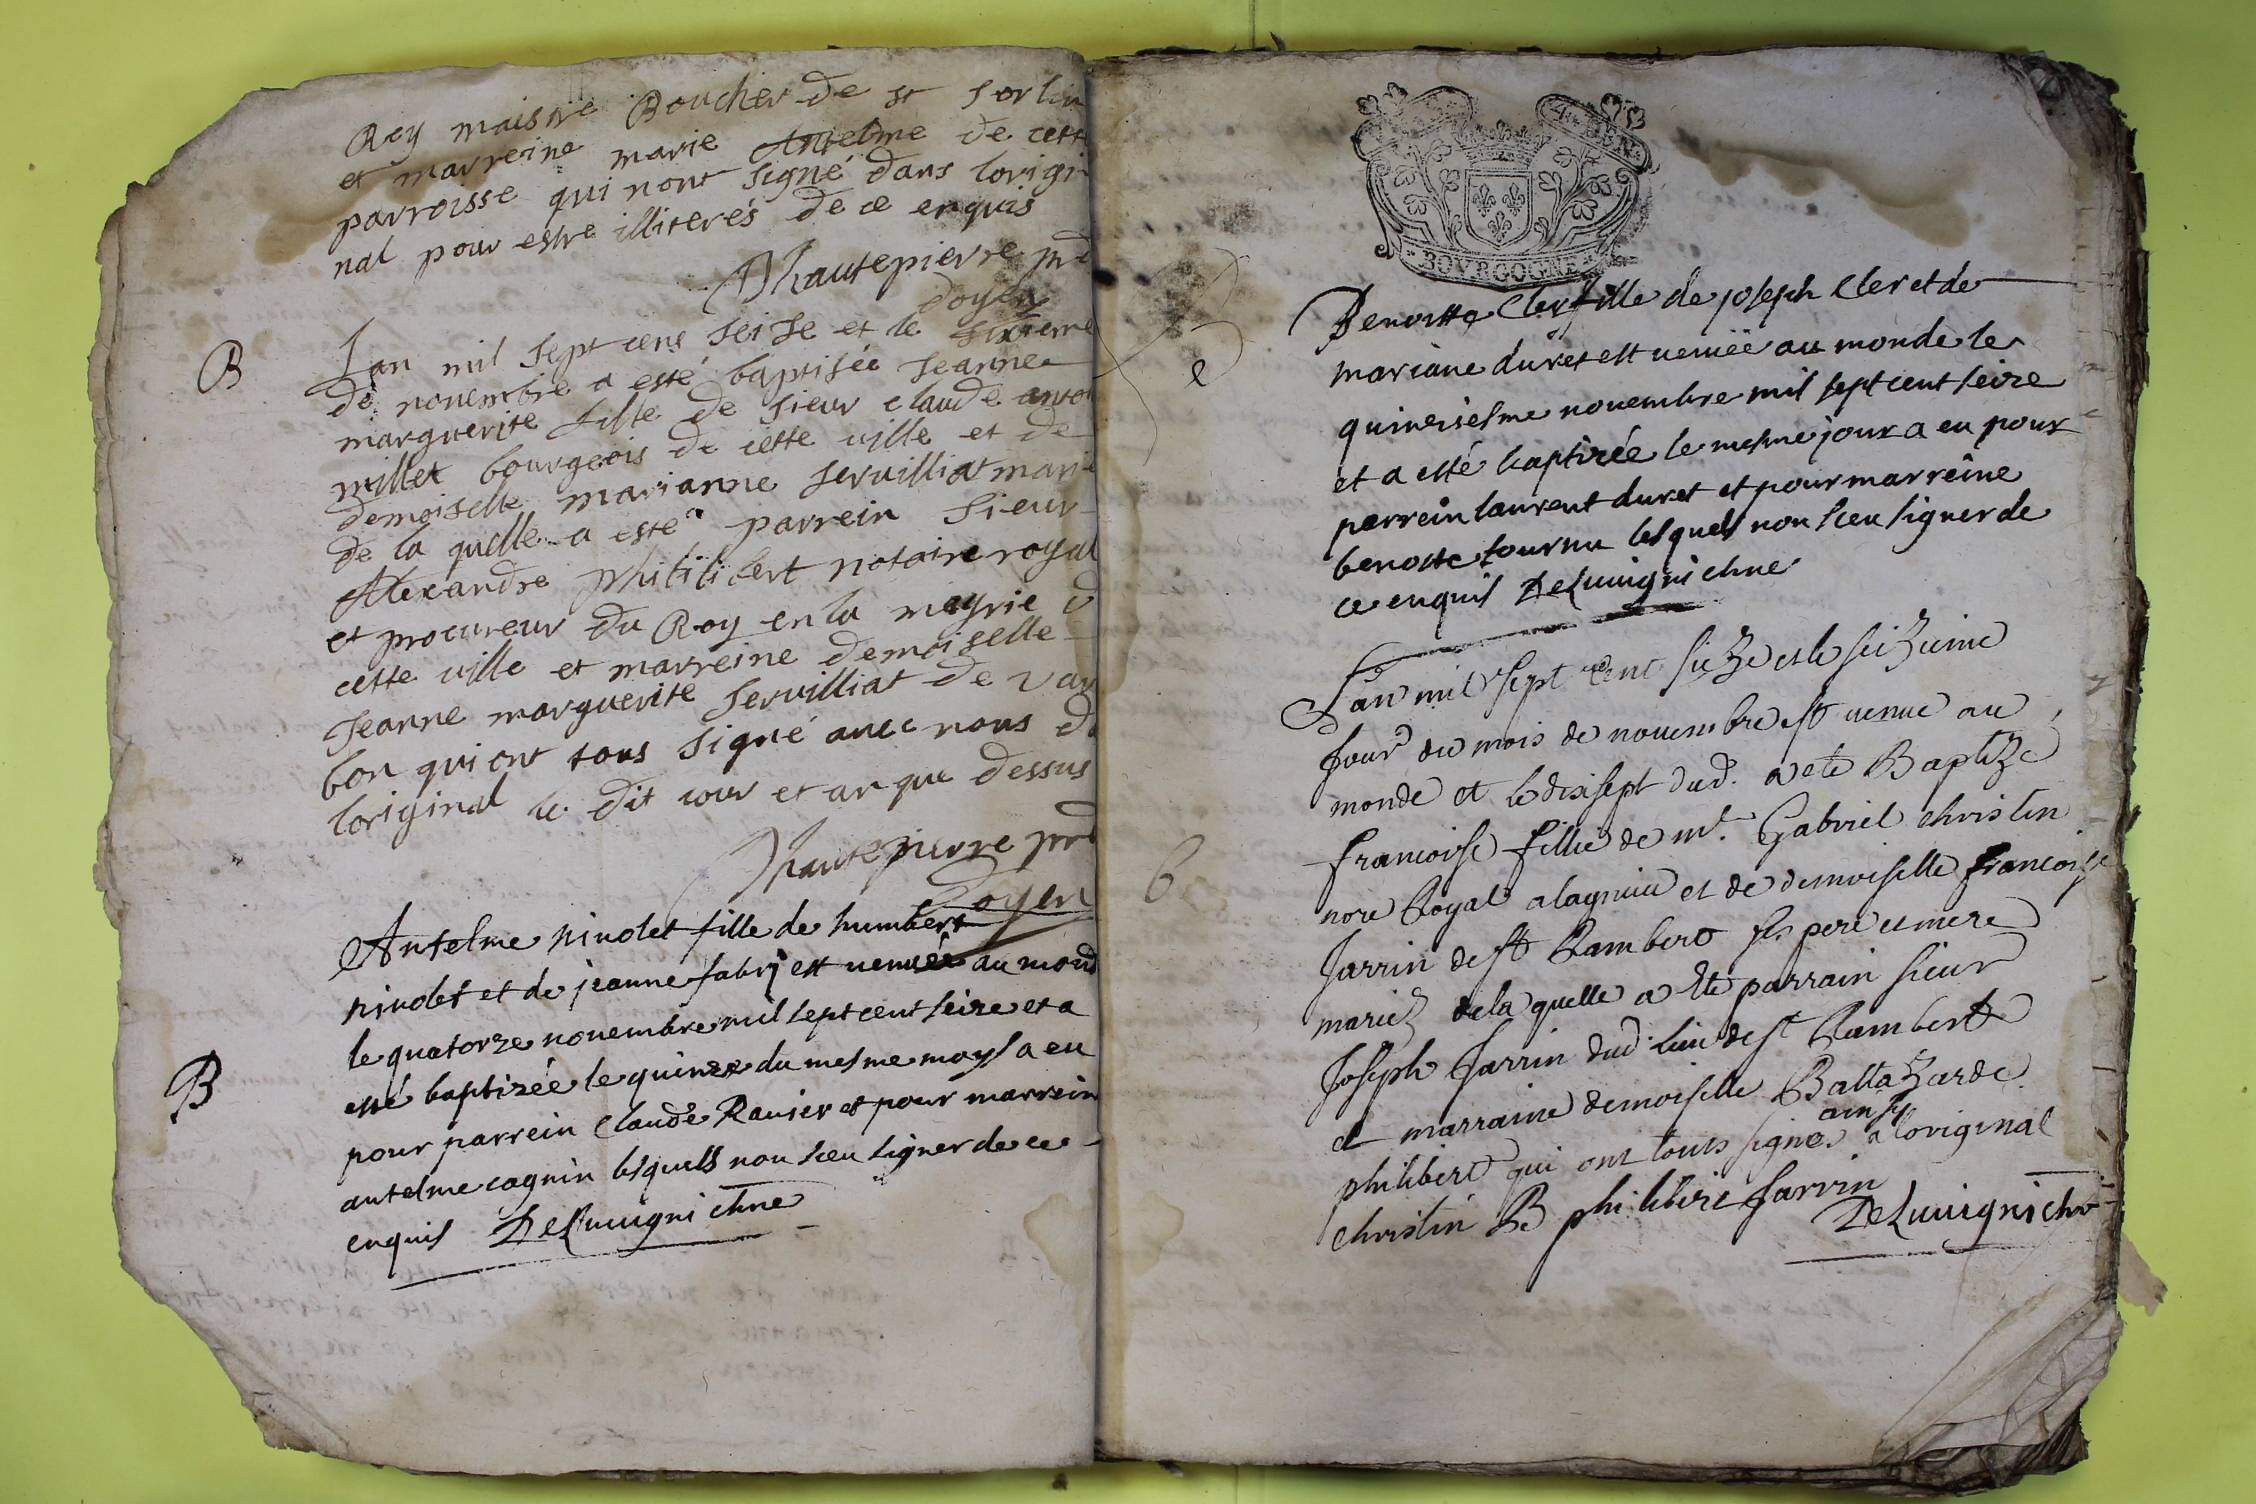 Roy maistre Boucher de st sorlin
et marreine marie Antelme de cett
parroisse qui nont signé dans lorigi
nal pour estre illiterés de ce enquis
Dhautepierre
doyen
B
Lan mil sept cens seise et le sixieme
de novembre a esté baptisée Jeanne
marguerite fille de sieur claude
millet bourgeois de cette ville et de
demoiselle marianne servilliat mari
de la quelle a esté parrein sieur
Alexandre philibert notaire royal
et procureur du Roy en la meyrie d
cette ville et marreine demoiselle
Jeanne marguerite servilliat de vau
bon qui ont tous signé avec nous d
loriginal le dit jour et an que dessus
Dhautepierre
Doyen
Antelme nivolet fille de humbert
nivolet et de jeanne fabry est venuë au mond
le quatorze novembre mil sept cent seize et a
esté baptizée le quinze du mesme moys a eu
B
pour parrein claude Ravier et pour marrein
antelme cagnin lesquells non sceu signer de ce
enquis
4.
BOVRGOGNE
Benoitte Cler fille de joseph Cler et de
mariane duret est venuëe au monde le
quinziesme novembre mil sept cent seize
et a esté baptizée le mesme jour a eu pour
parrein laurent duret et pour marreine
benoite tournu lesquels non sceu signer de
ce enquis
Lan mil sept cent seize et le seizieme
Jour du mois de novembre est venue au
monde et le dixsept dud. a ete Baptizé
francoise fillie de mr. Gabriel christin
nore Royal a lagnieu et de demoiselle francoise
Jarrin de st Rambert ses pere et mere
mariez de la quelle a ete parrain sieur
Joseph Jarrin dud. lieu de st Rambert
et marraine demoiselle Baltazarde
philibert qui ont touts signes ainsy a loriginal
christin B philibert Jarrin